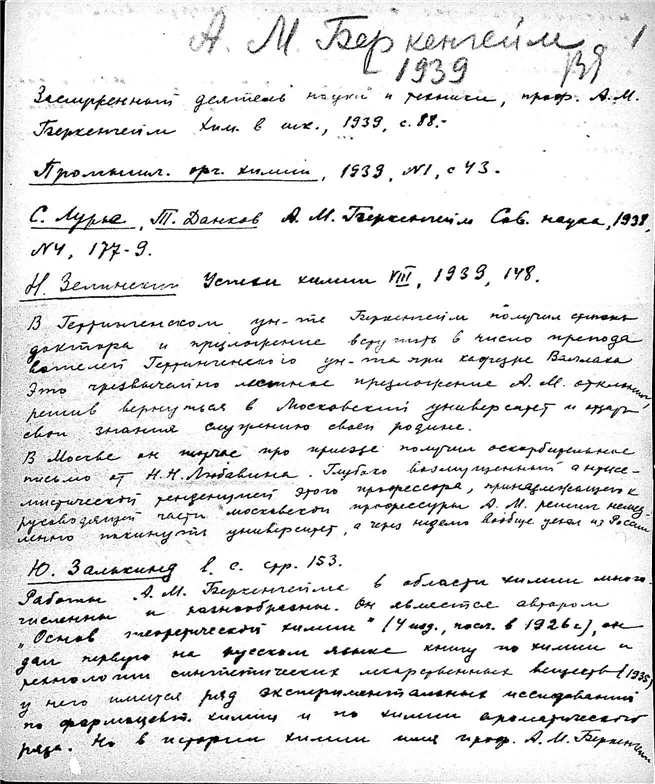 А. М. Беркенгейм 1
1939
Заслуженный деятель науки и техники, проф. А.М.
Беркенгейм Хим. в шк., 1939, с. 88.-
Промышл. орг. химии, 1939, №1, с 43.
С. Лурье, Т. Данков А. М. Беркенгейм Сов. наука, 1938,
№4, 177-9.
Н. Зелинский Успехи химии VIII, 1939, 148.
В Геттингенском ун-те Беркенгейм получил степень
доктора и предложение вступить в число препода
вателей Геттингенского ун-та при кафедре Валлаха
Это чрезвычайно лестное предложение А.М. отклонил,
решив вернуться в Московский университет и отдать
свои знания служению своей родине.
В Москве он тотчас по приезде получил оскорбительное
письмо от Н.Н. Любавина. Глубоко возмущенный антисе-
митической тенденцией этого профессора, принадлежащего к
руководящей части московской профессуры А.М. решил немед-
ленно покинуть университет, а через неделю вообще уехал из России
Ю. Залькинд в. с. стр. 153.
Работы А.М. Беркенгейма в области химии много-
численны и разнообразны. Он является автором
"Основ теоретической химии" (4 изд., посл. в 1926 г), он
дал первую на русском языке книгу по химии и
технологии синтетических лекарственных веществ (1935)
у него имеется ряд экспериментальных исследований
по формацевт. химии и по химии ароматического
ряда. Но в истории химии имя проф. А.М. Беркенгейм